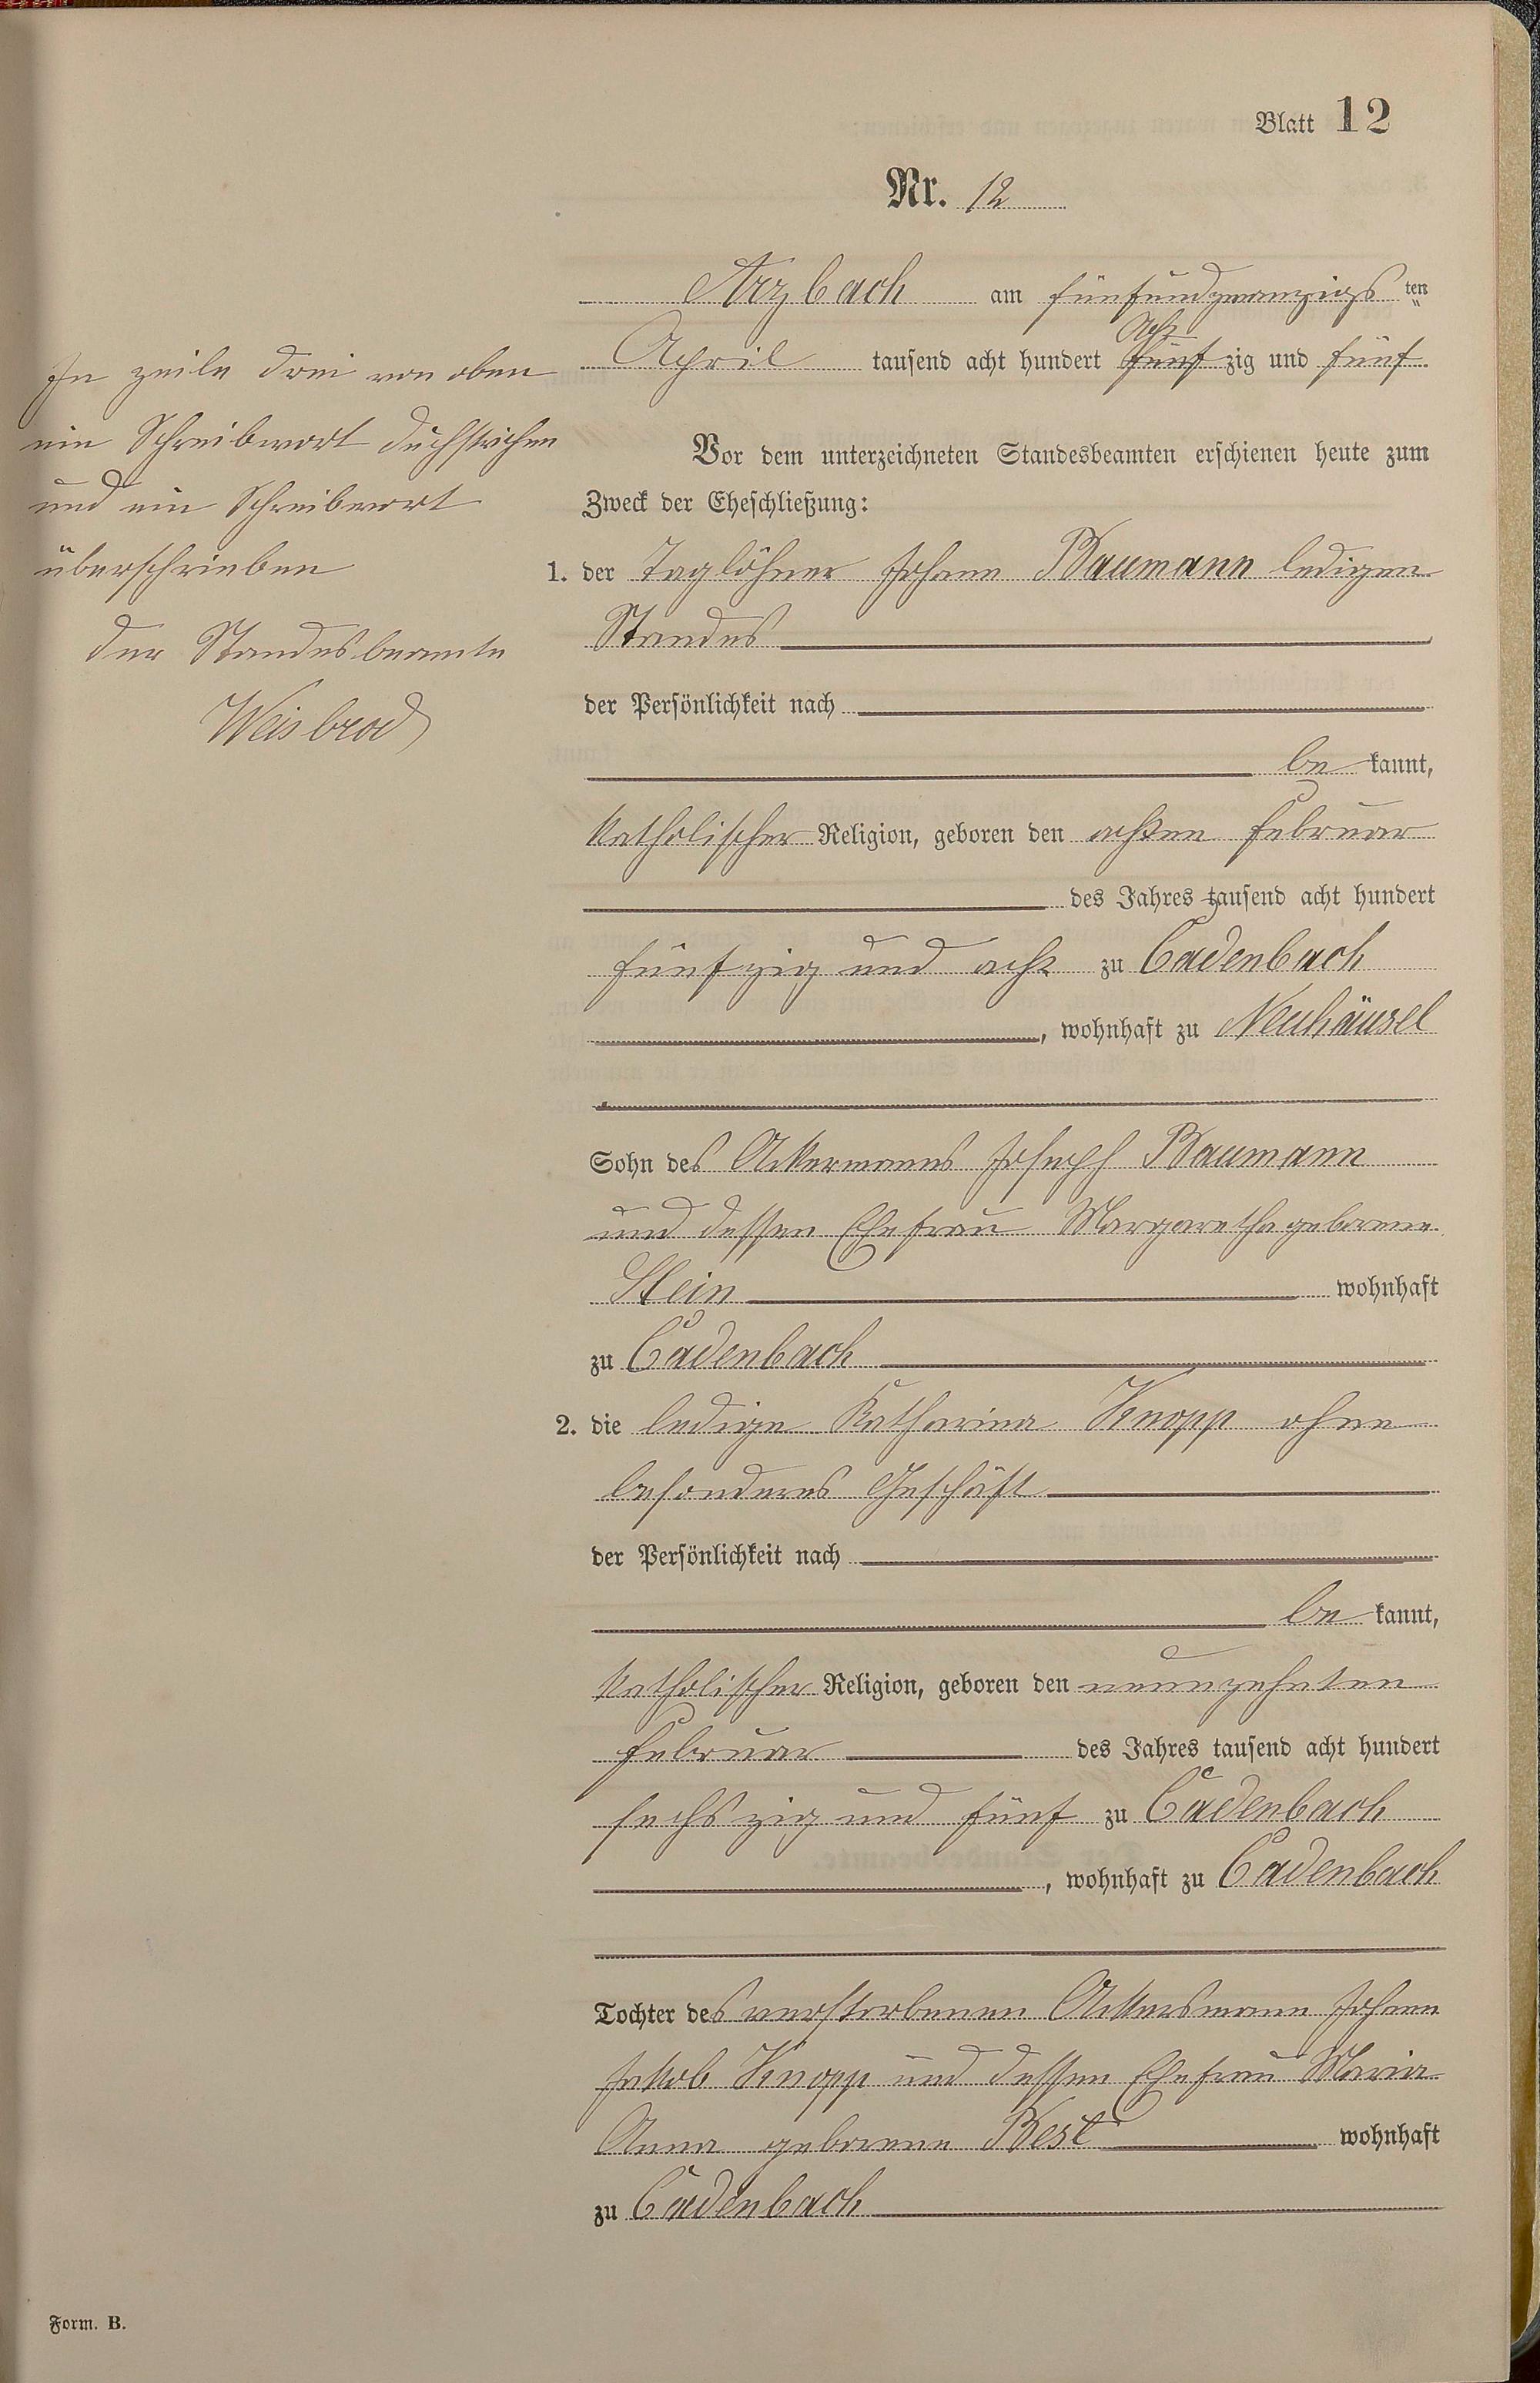 Blatt 12
Nr. 12
Arzbach am fünfundzwanzigsten
April tausend acht hundert fünfzig und fünf
Acht
In Zeile drei von oben
ein Schreibwort duchstrichen
und ein Schreibwort
überschrieben
Der Standesbeamte
Weisbrod
Vor dem unterzeichneten Standesbeamten erschienen heute zum
Zweck der Eheschließung:
1. der Taglöhner Johann Baumann ledigen
Standes
der Persönlichkeit nach
be kannt,
katholischer Religion, geboren den achten Februar
des Jahres tausend acht hundert
fünfzig und acht zu Cadenbach
, wohnhaft zu Neuhäusel
Sohn des Ackermanns Joseph Baumann
und dessen Ehefrau Margaretha geborene
Stein wohnhaft
zu Cadenbach
2. die ledige Katharina Knopp ohne
besonderes Geschäft
der Persönlichkeit nach
be kannt,
katholischer Religion, geboren den neunzehnten
Februar des Jahres tausend acht hundert
sechszig und fünf zu Cadenbach
, wohnhaft zu Cadenbach
Tochter des verstorbenen Ackersmann Johann
Jakob Knopp und dessen Ehefrau Maria
Anna geborene Best wohnhaft
zu Cadenbach
Form. B.